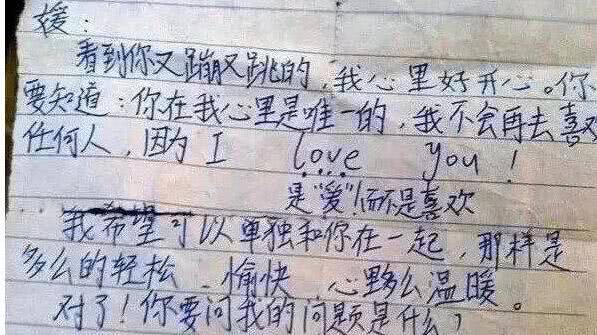 媛：
看到你又蹦又跳的，我心里好开心。你
要知道：你在我心里是唯一的，我不会再去喜欢
任何人，因为 I love you！
是“爱”而不是喜欢
我希望可以单独和你在一起，那样是
多么的轻松、愉快、心里多么温暖。
对了！你要问我的问题是什么？